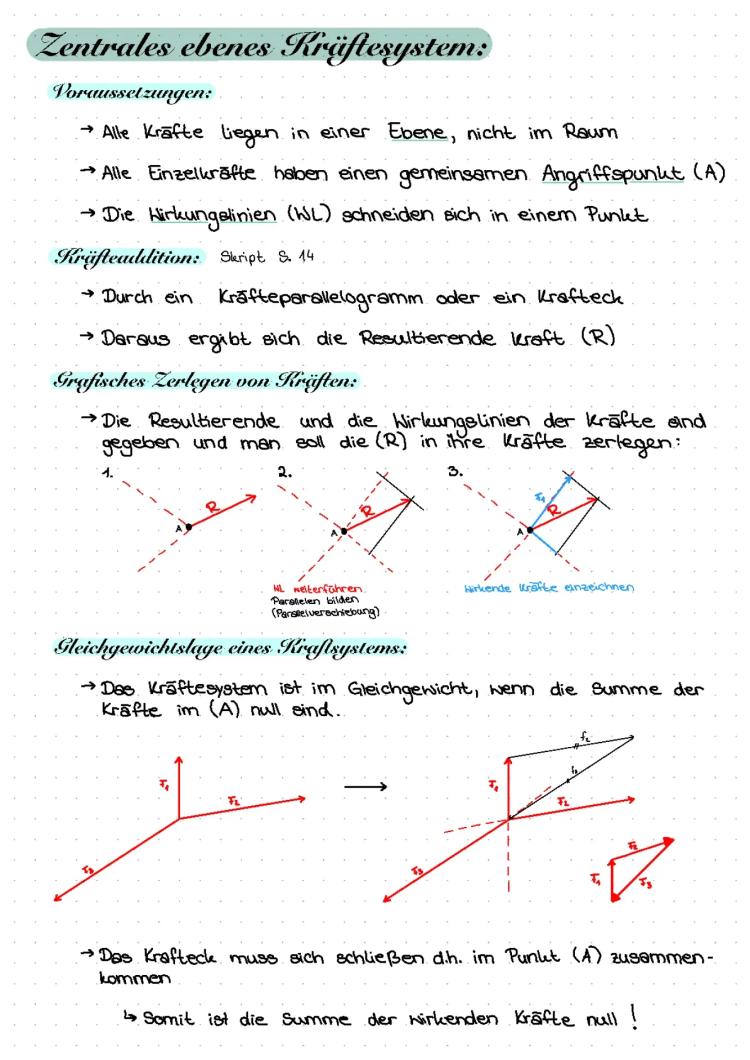 Zentrales ebenes Kräftesystem:
Voraussetzungen:
→ Alle Kräfte liegen in einer Ebene, nicht im Raum
→ Alle Einzelkräfte haben einen gemeinsamen Angriffspunkt (A)
→ Die Wirkungslinien (WL) schneiden sich in einem Punkt
Kräfteaddition: Skript S. 14
→ Durch ein Kräfteparallelogramm oder ein Krafteck
→ Daraus ergibt sich die Resultierende Kraft (R)
Grafisches Zerlegen von Kräften:
→ Die Resultierende und die Wirkungslinien der Kräfte sind
gegeben und man soll die (R) in ihre Kräfte zerlegen:
1. 2. 3.
A R
A R
A F1 R
WL weiterführen
Parallelen bilden
(Parallelverschiebung)
Wirkende Kräfte einzeichnen
Gleichgewichtslage eines Kraftsystems:
→ Das Kräftesystem ist im Gleichgewicht, wenn die Summe der
Kräfte im (A) null sind.
F1 F2 F3
→
F1 F2 F3 f2 f3
F1 F2 F3
→ Das Krafteck muss sich schließen d.h. im Punkt (A) zusammen-
kommen
↳ Somit ist die Summe der wirkenden Kräfte null !